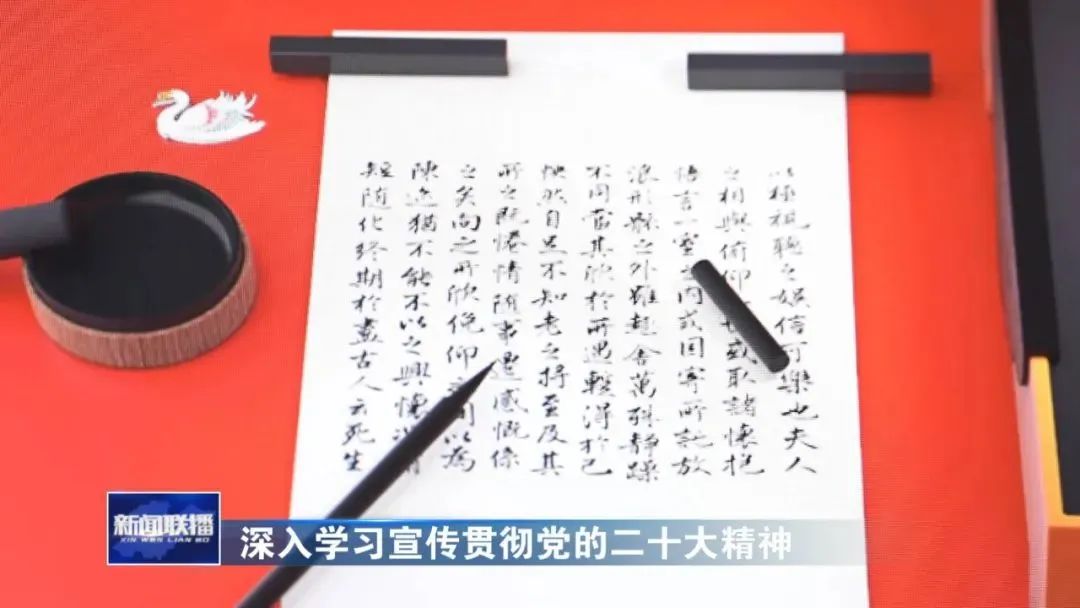 以極視聽之娱信可樂也夫人
之相與俯仰世或取諸懷抱
悟言一室之内或因寄所託放
浪形骸之外雖趣舍萬殊静躁
不同當其欣於所遇蹔得於己
怏然自足不知老之將至及其
所之既惓情随事遷感慨係
之矣向之所欣俛仰間以為
陳迹猶不能不以之興懷
短随化終期於盡古人云死生
新闻联播
XIN WEN LIAN BO
深入学习宣传贯彻党的二十大精神